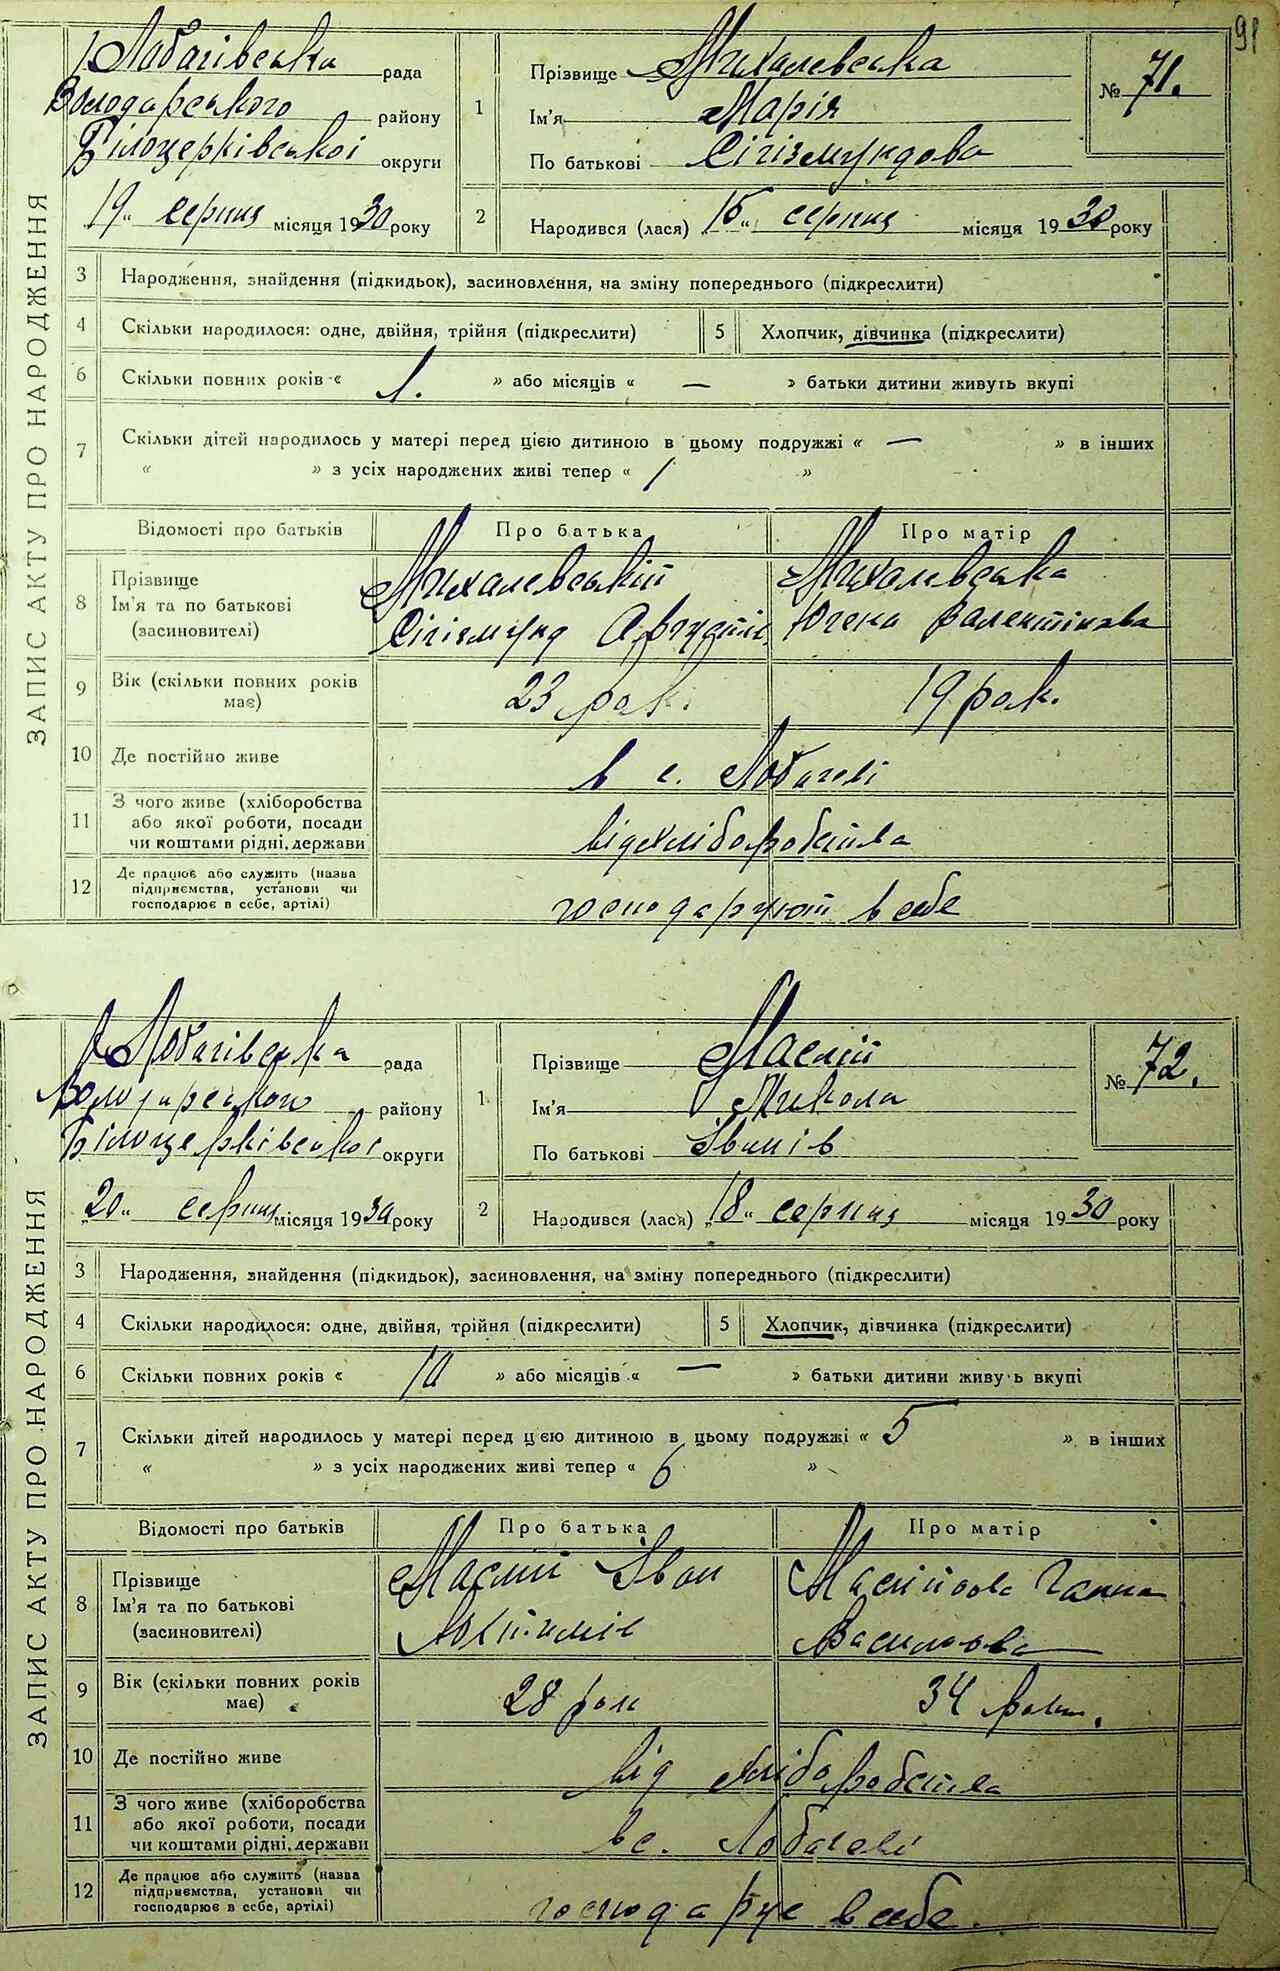 91
ЗАПИС АКТУ ПРО НАРОДЖЕННЯ
Лобачівська рада
Володарського району
Білоцерківської округи
19 серпня місяця 1930 року
1 Прізвище Михалевська
Ім'я Марія
По батькові Сігізмундова
№ 71.
2 Народився (лася) „15“ серпня місяця 1930 року
3 Народження, знайдення (підкидьок), засиновлення, на зміну попереднього (підкреслити)
4 Скільки народилося: одне, двійня, трійня (підкреслити) 5 Хлопчик, дівчинка (підкреслити)
6 Скільки повних років « 1. » або місяців « — » батьки дитини живуть вкупі
7 Скільки дітей народилось у матері перед цією дитиною в цьому подружжі « — » в інших
« » з усіх народжених живі тепер « 1 »
Відомості про батьків Про батька Про матір
8 Прізвище Ім'я та по батькові (засиновителі)
Михалевський Михалевська
Сігізмунд Югена Валентінова
9 Вік (скільки повних років має) 23 рок. 19 рок.
10 Де постійно живе в с. Лобачеві
11 З чого живе (хліборобства або якої роботи, посади чи коштами рідні, держави від хліборобства
12 Де працює або служить (назва підприємства, установи чи господарює в себе, артілі) господарюют в себе
ЗАПИС АКТУ ПРО НАРОДЖЕННЯ
Лобачівська рада
Володарського району
Білоцерківської округи
„20“ серпня місяця 1930 року
1 Прізвище Маслій
Ім'я Микола
По батькові Іванів
№ 72.
2 Народився (лася) „18“ серпня місяця 1930 року
3 Народження, знайдення (підкидьок), засиновлення, на зміну попереднього (підкреслити)
4 Скільки народилося: одне, двійня, трійня (підкреслити) 5 Хлопчик, дівчинка (підкреслити)
6 Скільки повних років « 10 » або місяців « — » батьки дитини живуть вкупі
7 Скільки дітей народилось у матері перед цією дитиною в цьому подружжі « 5 » в інших
« » з усіх народжених живі тепер « 6 »
Відомості про батьків Про батька Про матір
8 Прізвище Ім'я та по батькові (засиновителі)
Маслій Іван Ганна
Василова
9 Вік (скільки повних років має) 28 рок 34 рок.
10 Де постійно живе від хліборобства
11 З чого живе (хліборобства або якої роботи, посади чи коштами рідні, держави в с. Лобачеві
12 Де працює або служить (назва підприємства, установи чи господарює в себе, артілі) господарує в себе.